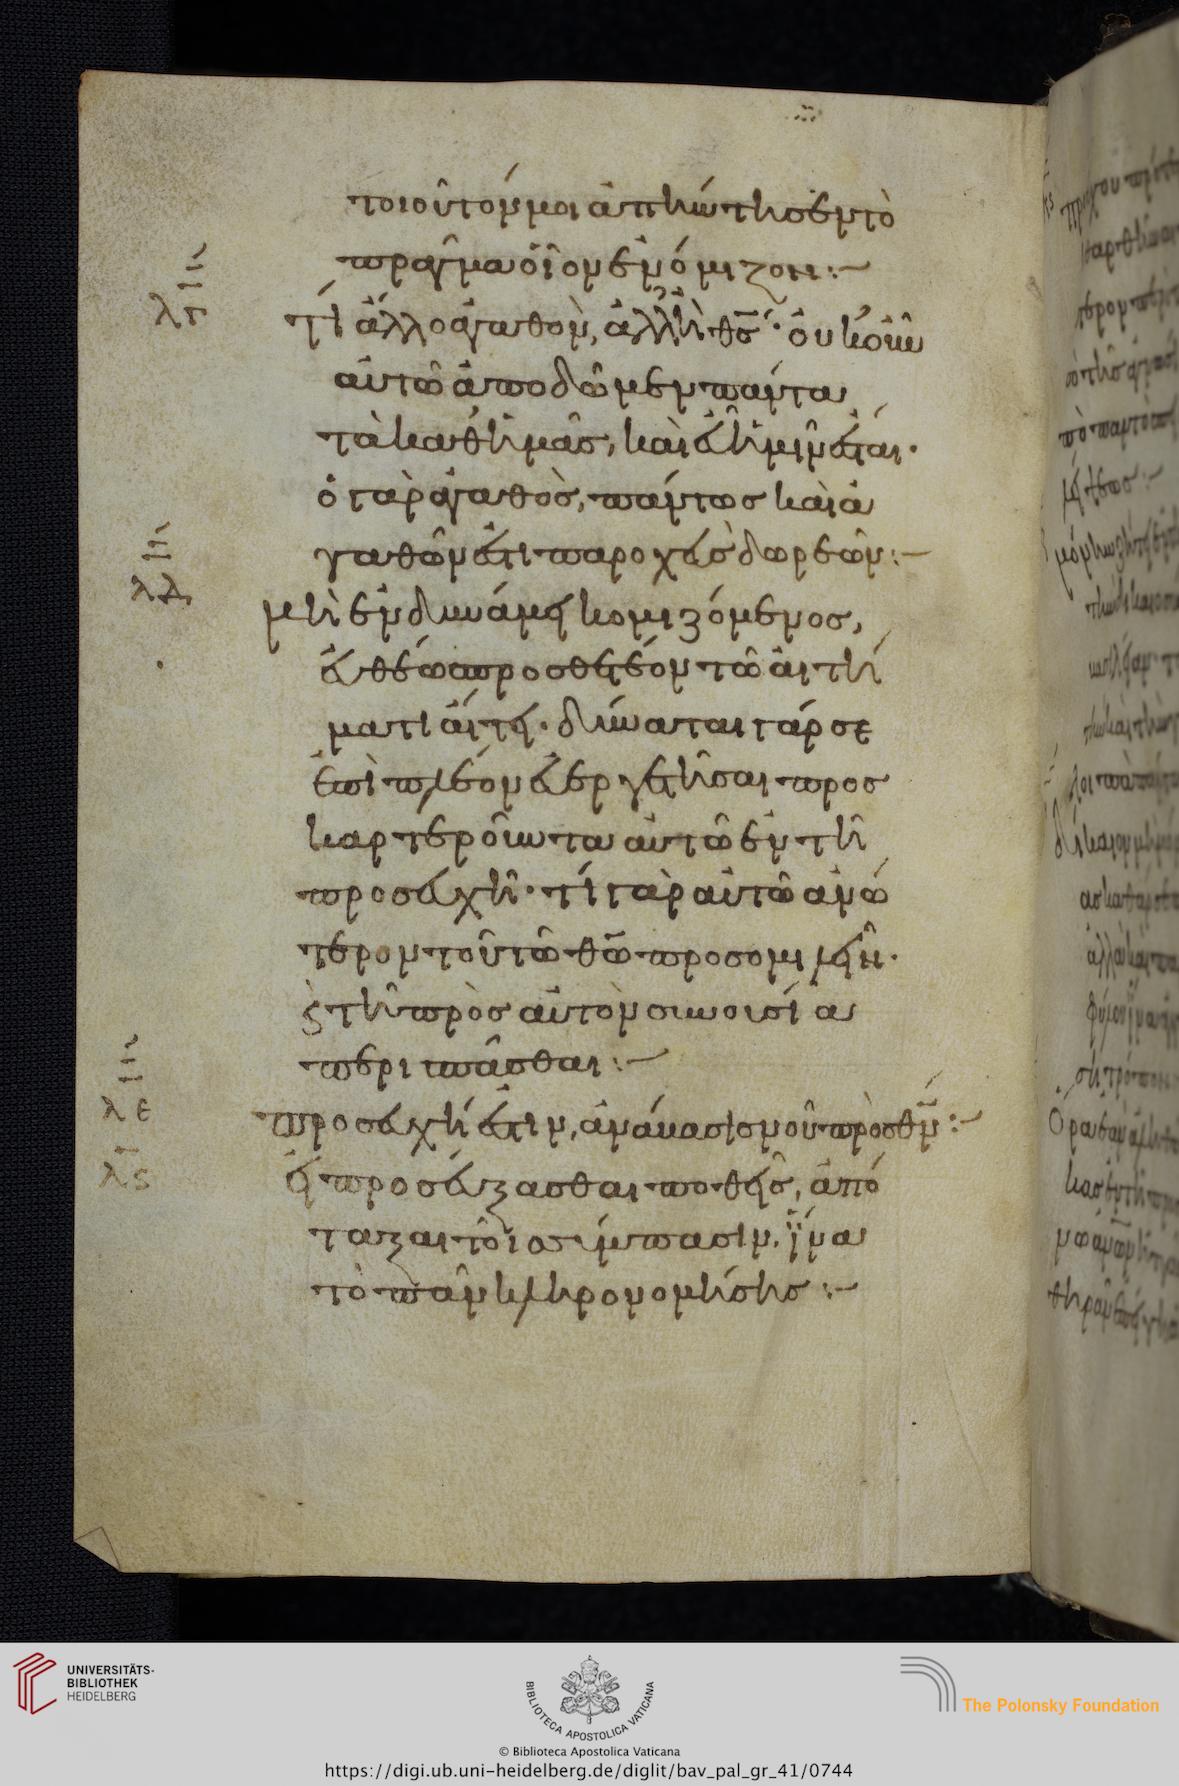 τοιοῦτόν μοι ἀπήντησεν τὸ
πρᾶγμα οἷον ἐνόμιζον:~
λγ τί ἄλλο ἀγαθὸν, ἀλλ' ἢ ὁ θ̅ς̅· οὐκοῦν
αὐτῶ ἀποδῶμεν πάντα
τὰ καθ' ἡμᾶς, καὶ εὖ ἡμῖν ἔσται·
ὁ γὰρ ἀγαθὸς, πάντως καὶ ἀ
γαθῶν ἐστι παροχεὺς δωρεῶν:~
λδ μὴ ἐν δυνάμει κομιζόμενος,
εὐθέως πρὸς θεὸν τῶ αἰτή
ματι αἰτεῖ· δύναται γάρ σε
ἐπὶ πλέον εὐεργετῆσαι προσ
καρτεροῦντα αὐτῶ ἐν τῆ
προσευχῆ· τί γὰρ αὐτῶ ἀνώ
τερον τοῦ τῶ θ̅ω̅ προσομιλεῖν·
ϛ τῆ πρὸς αὐτὸν συνουσία
περισπᾶσθαι:~
λε προσευχή ἐστιν, ἀνάβασις νοῦ πρὸς θ̅ν̅:~
λϛ εἰ προσεύξασθαι ποθεῖς, ἀπό
ταξαι τοῖς σύμπασιν, ἵνα
τὸ πᾶν κληρονομήσης:~
UNIVERSITÄTS-
BIBLIOTHEK
HEIDELBERG
BIBLIOTECA APOSTOLICA VATICANA
The Polonsky Foundation
© Biblioteca Apostolica Vaticana
https://digi.ub.uni-heidelberg.de/diglit/bav_pal_gr_41/0744